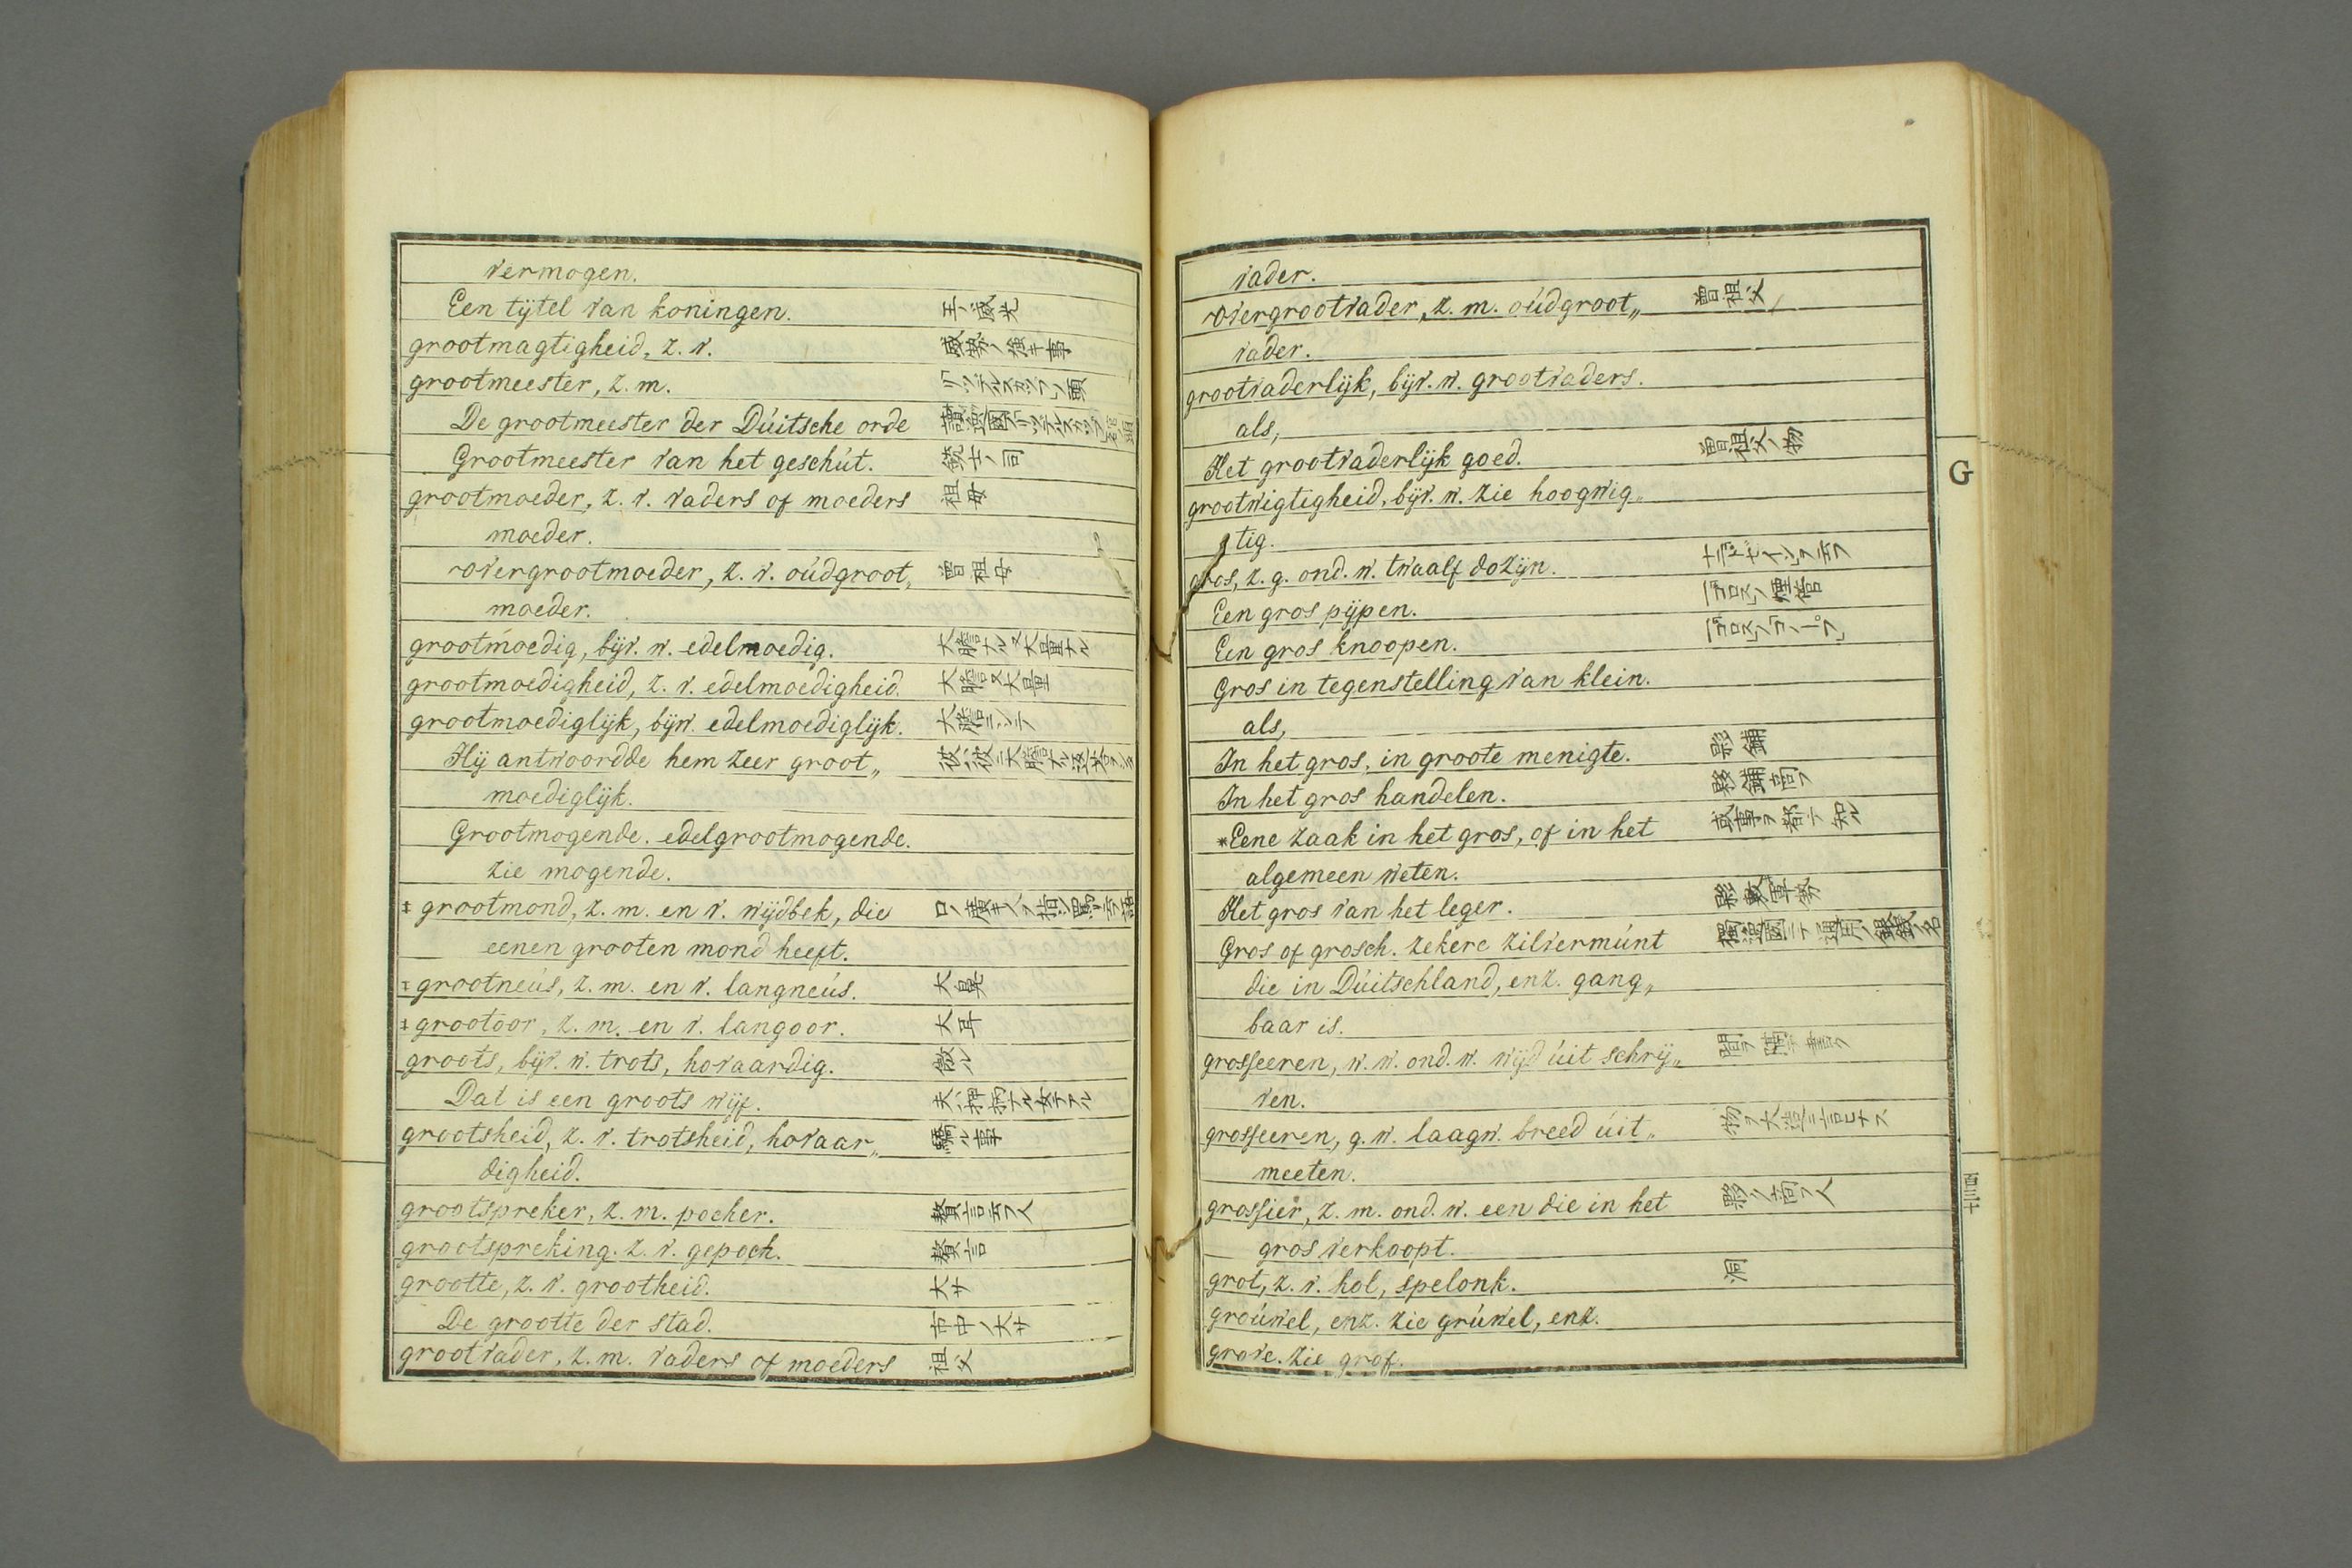 vermogen.
Een tijtel van koningen. 王ノ威光
grootmagtigheid, z. v. 威勢ノ強キ事
grootmeester, z. m.
De grootmeester der Dúitsche orde
Grootmeester van het geschút. 銃士ノ司
grootmoeder, z. v. vaders of moeders 祖母
moeder.
overgrootmoeder, z. v. oúdgroot„ 曾祖母
moeder.
grootmoedig, bijv. w. edelmoedig. 大膽ナル又大量ナル
grootmoedigheid, z. v. edelmoedigheid. 大膽又大量
grootmoediglijk, bijw. edelmoediglijk. 大膽ニシテ
Hij antwoordde hem zeer groot„
moediglijk.
Grootmogende. edelgrootmogende.
zie mogende.
‡ grootmond, z. m. en v. wijdbek, die
eenen grooten mond heeft.
‡ grootneús, z. m. en v. langneús. 大鼻
‡ grootoor, z. m. en v. langoor. 大耳
groots, bijv. w. trots, hovaardig. 傲ル
Dat is een groots wijf.
grootsheid, z. v. trotsheid, hovaar„ 驕ル事
digheid.
grootspreker, z. m. pocher. 贅言云フ人
grootspreking. z. v. gepoch. 贅言
grootte, z. v. grootheid. 大サ
De grootte der stad. 市中ノ大サ
grootvader, z. m. vaders of moeders 祖父
vader.
overgrootvader, z. m. oúdgroot„ 曾祖父
vader.
grootvaderlijk, bijv. w. grootvaders.
als,
Het grootvaderlijk goed. 曾祖父ノ物
grootwigtigheid, bijv. w. zie hoogwig„
tig.
gros, z. g. ond. w. twaalf dozijn.
Een gros pijpen.
Een gros knoopen.
Gros in tegenstelling van klein.
als,
In het gros, in groote menigte.
In het gros handelen.
*Eene zaak in het gros, of in het 或事ヲ都テ知ル
algemeen weten.
Het gros van het leger.
Gros of grosch. zekere zilvermúnt
die in Dúitschland, enz. gang„
baar is.
grosseeren, w. w. ond. w. wijd úit schrij„
ven.
grosseeren, g. w. laagw. breed úit„
meeten.
grossier, z. m. ond. w. een die in het
gros verkoopt.
grot, z. v. hol, spelonk. 洞
groúwel, enz. zie grúwel, enz.
grove. zie grof.
G